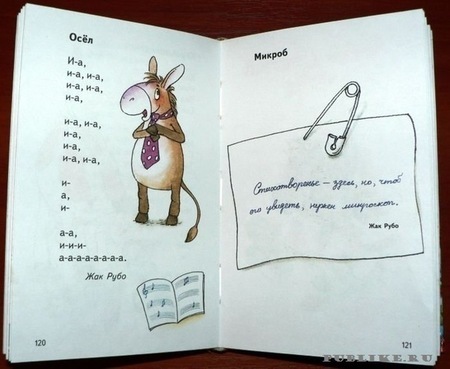 Осёл
И-а,
и-а, и-а,
и-а, и-а,
и-а,
и-а, и-а,
и-а,
и-а,
и-а, и-а,
и-
а,
и-
а-а,
и-и-и-
а-а-а-а-а-а-а.
Жак Рубо
120
Микроб
Стихотворенье – здесь, но, чтоб
его увидеть, нужен микроскоп.
Жак Рубо
121
PUBLIKE.RU